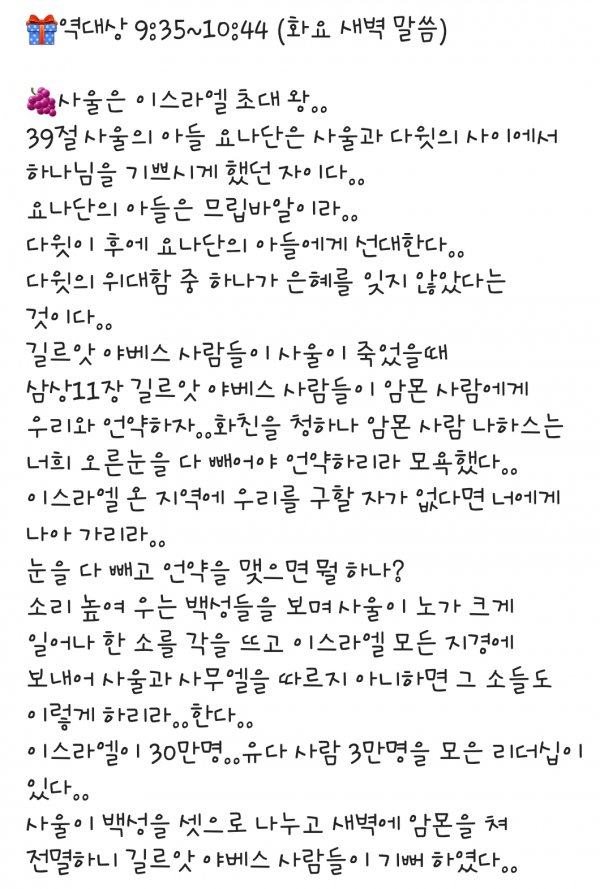 🎁역대상 9:35~10:44 (화요 새벽 말씀)
🍇사울은 이스라엘 초대 왕..
39절 사울의 아들 요나단은 사울과 다윗의 사이에서
하나님을 기쁘시게 했던 자이다..
요나단의 아들은 므립바알이라..
다윗이 후에 요나단의 아들에게 선대한다..
다윗의 위대함 중 하나가 은혜를 잊지 않았다는
것이다..
길르앗 야베스 사람들이 사울이 죽었을때
삼상11장 길르앗 야베스 사람들이 암몬 사람에게
우리와 언약하자..화친을 청하나 암몬 사람 나하스는
너희 오른눈을 다 빼어야 언약하리라 모욕했다..
이스라엘 온 지역에 우리를 구할 자가 없다면 너에게
나아 가리라..
눈을 다 빼고 언약을 맺으면 뭘 하나?
소리 높여 우는 백성들을 보며 사울이 노가 크게
일어나 한 소를 각을 뜨고 이스라엘 모든 지경에
보내어 사울과 사무엘을 따르지 아니하면 그 소들도
이렇게 하리라..한다..
이스라엘이 30만명..유다 사람 3만명을 모은 리더십이
있다..
사울이 백성을 셋으로 나누고 새벽에 암몬을 쳐
전멸하니 길르앗 야베스 사람들이 기뻐 하였다..